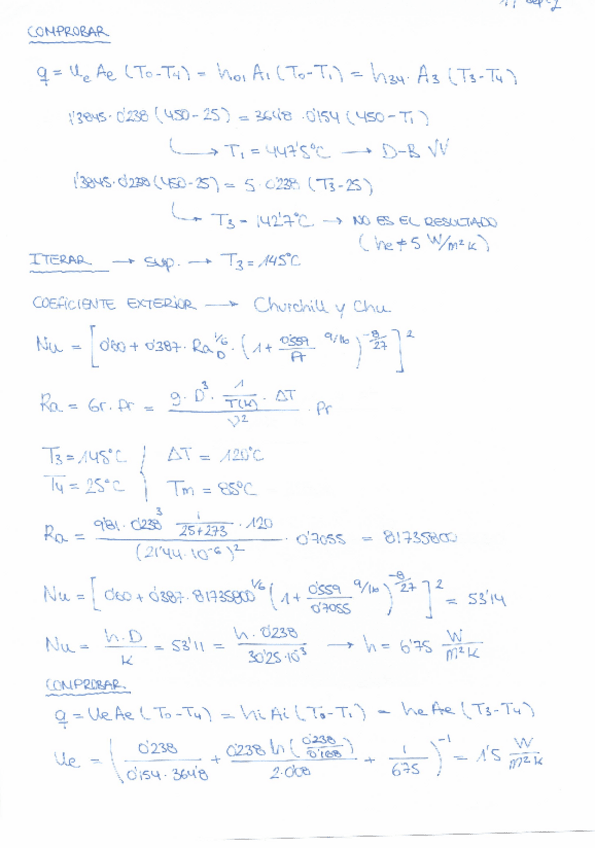 COMPROBAR
q = Ue Ae (T0-T4) = h01 A1 (T0-T1) = h34 · A3 (T3-T4)
1'3845 · 0'238 (450-25) = 3648 · 0'154 (450-T1)
→ T1 = 447'5°C → D-B √√
1'3845 · 0'238 (450-25) = 5 · 0'238 (T3-25)
→ T3 = 142'7°C. → NO ES EL RESULTADO
(he ≠ 5 W/m²K)
ITERAR → sup. → T3 = 145°C
COEFICIENTE EXTERIOR → Churchill y Chu.
Nu = [0'60 + 0'387 · Ra_D^1/6 · (1 + 0'559/Pr ^9/16)^-8/27]²
Ra = Gr · Pr = g · D³ · 1/T(K) · ΔT / ν² · Pr
T3 = 145°C } ΔT = 120°C
T4 = 25°C } Tm = 85°C
Ra = 9'81 · 0'238³ · 1/25+273 · 120 / (21'44 · 10^-6)² · 0'7055 = 81735800
Nu = [0'60 + 0'387 · 81735800^1/6 (1 + 0'559/0'7055 ^9/16)^-8/27]² = 53'14
Nu = h · D / k = 53'11 = h · 0'238 / 30'25 · 10^3 → h = 6'75 W/m²K
COMPROBAR.
q = Ue Ae (T0-T4) = hi Ai (T0-T1) = he Ae (T3-T4)
Ue = (0'238 / 0'154 · 3648 + 0'238 ln (0'238/0'168) / 2 · 0'08 + 1/6'75)^-1 = 1'5 W/m²K